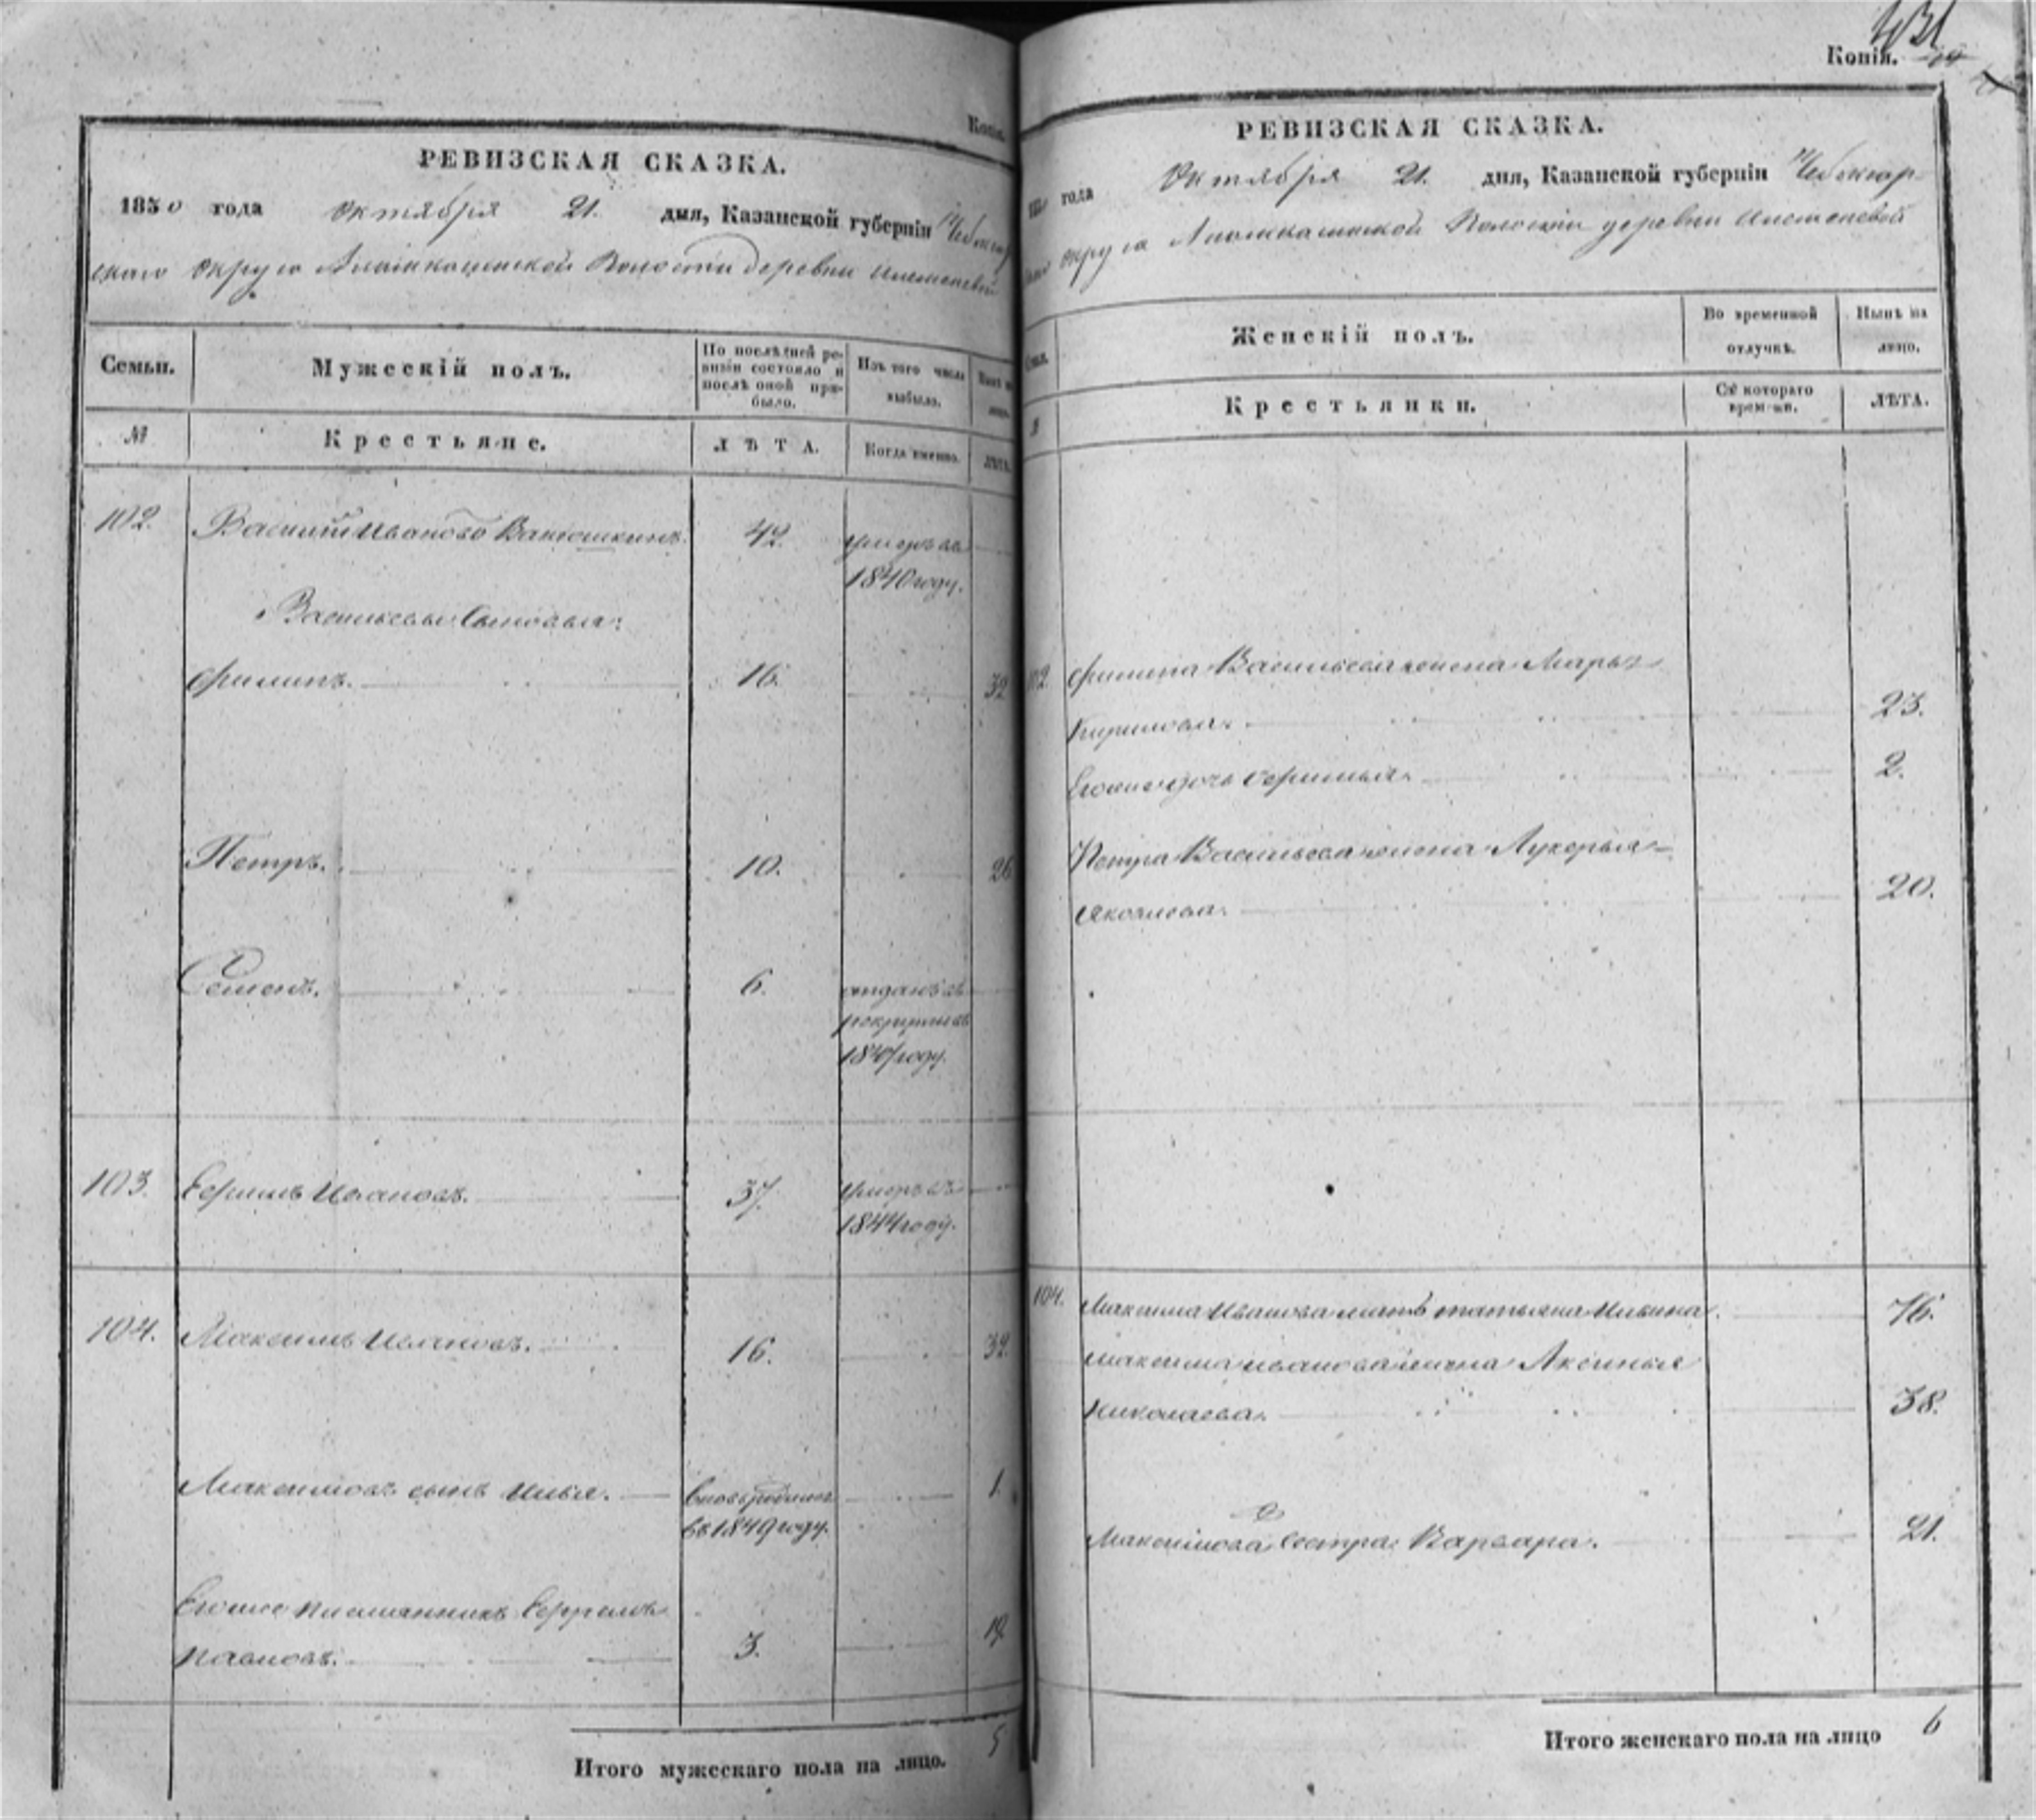 Копія.
РЕВИЗСКАЯ СКАЗКА.
1850 года Октября 21. дня, Казанской губерніи Чебоксар
скаго Округа Волости деревни
Семьи. Мужескій полъ. По послѣдней ре-
визіи состояло и
послѣ оной при-
было. Изъ того числа
выбыло. Нынѣ на
лицо.
№ Крестьяне. ЛѢТА. Когда именно. ЛѢТА.
102. Василій Ивановъ Ванюшкинъ. 42. умеръ въ
1840 году.
Васильевы сыновья:
Филипъ. 16. 32
Петръ. 10. 26
Семенъ. 6. отданъ въ
рекруты въ
году.
103. Ефимъ Ивановъ. 37. умеръ въ
1844 году.
104. Максимъ Ивановъ. 16. 32.
Максимовъ сынъ Илья. вновь рожден
въ 1849 году. 1.
Его же племянникъ
Павловъ. 3. 19.
Итого мужескаго пола на лицо. 5
Копія.
РЕВИЗСКАЯ СКАЗКА.
года Октября 21. дня, Казанской губерніи Чебоксар
Округа Волости деревни
Женскій полъ. Во временной
отлучкѣ. Нынѣ на
лицо.
№ Крестьянки. Съ котораго
времени. ЛѢТА.
102 Филипа Васильева жена Марья
Кирилова. 23.
Его же дочь Ефимья. 2.
Петра Васильева жена Лукерья
Яковлева. 20.
104. Максима Иванова мать Татьяна Ильина. 76.
Максима Иванова жена Аксинья
Николаева. 38.
Максимова сестра Варвара. 21.
Итого женскаго пола на лицо 6